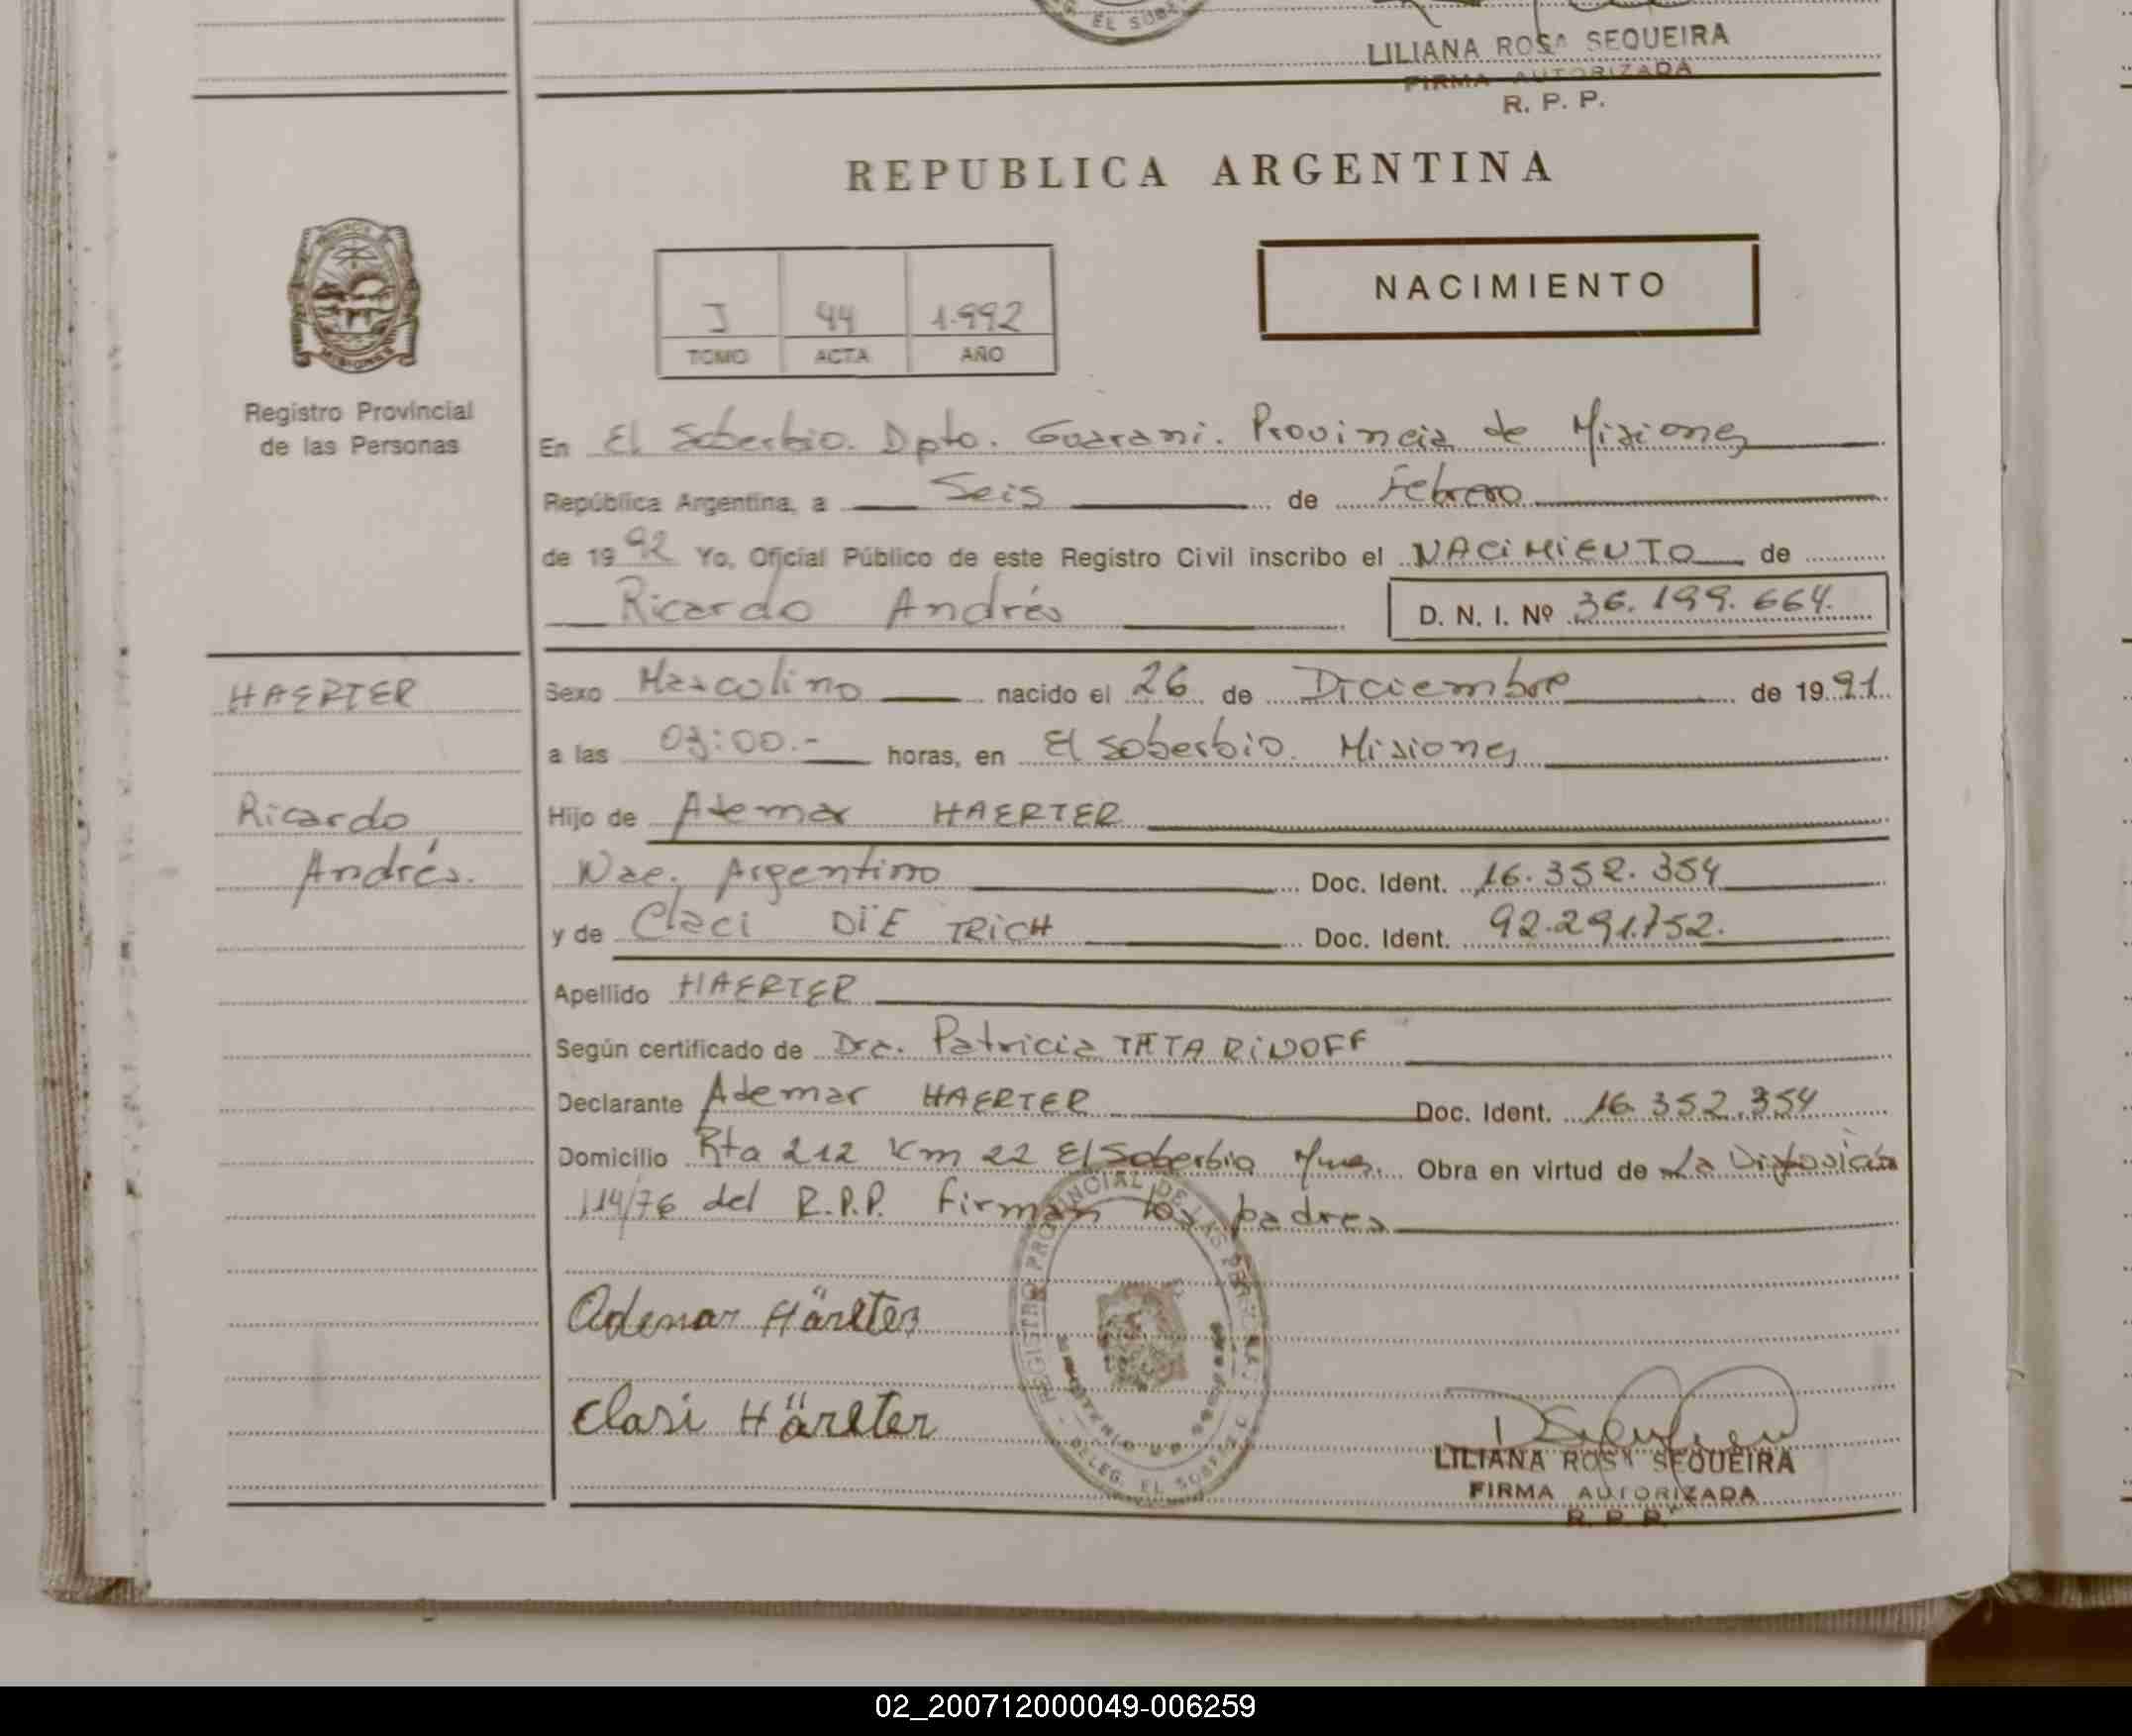 EL SOBE
LILIANA ROSA SEQUEIRA
FIRMA AUTORIZADA
R. P. P.
REPUBLICA ARGENTINA
NACIMIENTO
J 44 1.992
TOMO ACTA AÑO
Registro Provincial
de las Personas
En El Soberbio. Dpto. Guarani. Provincia de Misiones
República Argentina, a Seis de Febrero
de 1992 Yo, Oficial Público de este Registro Civil inscribo el NACIMIENTO de
Ricardo Andrés D. N. I. Nº 36.199.664.
HAERTER
Sexo Masculino nacido el 26 de Diciembre de 1991
a las 03:00.- horas, en El Soberbio. Misiones
Ricardo
Andrés.
Hijo de Ademar HAERTER
Nac. Argentino Doc. Ident. 16.352.354
y de Claci DIETRICH Doc. Ident. 92.291.752.
Apellido HAERTER
Según certificado de Dra. Patricia TATARINOFF
Declarante Ademar HAERTER Doc. Ident. 16.352.354
Domicilio Rta 212 Km 22 El Soberbio Mnes. Obra en virtud de La Disposición
114/76 del R.P.P. firman los padres
Ademar Härter
Clasi Härter
REGISTRO PROVINCIAL DE LAS PERSONAS
DELEG. EL SOBERBIO
LILIANA ROSA SEQUEIRA
FIRMA AUTORIZADA
R. P. P.
02_200712000049-006259